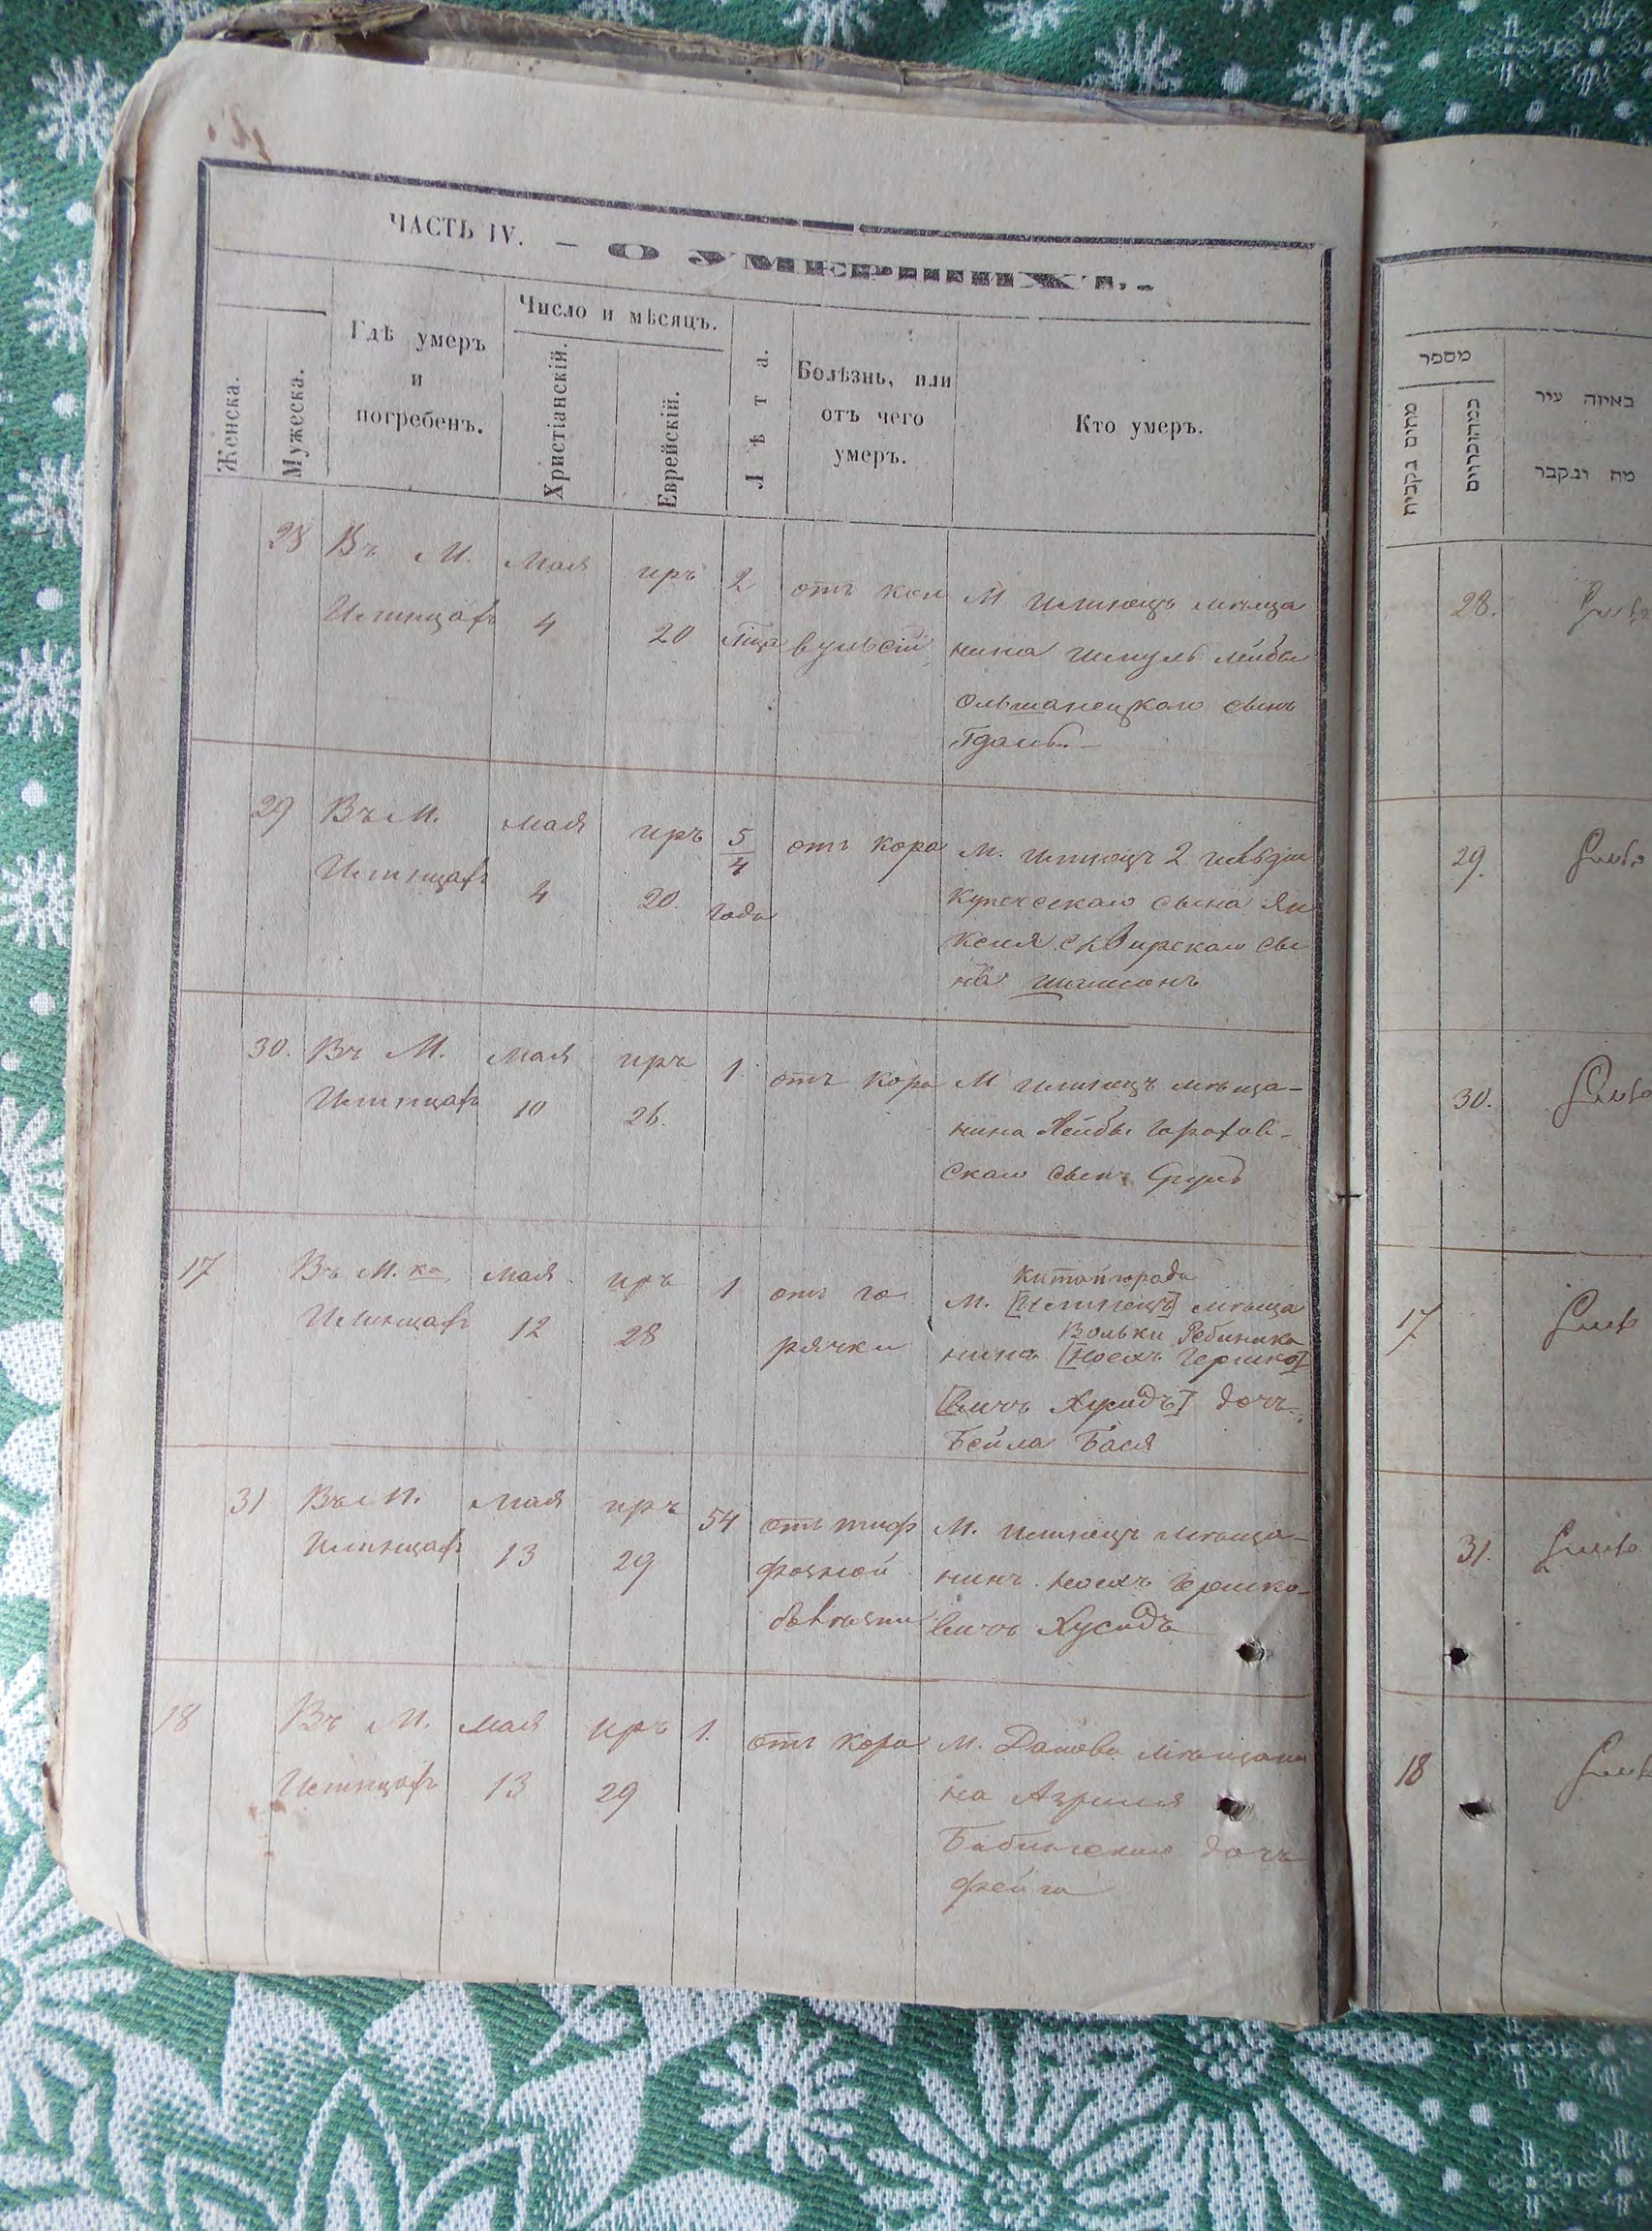 ЧАСТЬ IV. — О УМЕРШИХЪ.
Женска.
Мужеска.
Гдѣ умеръ
и
погребенъ.
Число и мѣсяцъ.
Христіанскій.
Еврейскій.
Лѣта.
Болѣзнь, или
отъ чего
умеръ.
Кто умеръ.
28
Въ М.
Илинцахъ
Мая
4
иръ
20
2
отъ кон
вульсій
М Илинецъ мѣща
нина Шмуль Лейбы
Ольшанецкаго сынъ
29
Въ М.
Илинцахъ
мая
4
иръ
20.
5/4
года
отъ кора
М. Илинецъ 2 гильдіи
купеческаго сына Ян
келя Сквирскаго сы
на Шимшонъ
30.
Въ М.
Илинцахъ
мая
10
иръ
26.
1.
отъ кора
М Илинецъ мѣща-
нина Лейбы
скаго сынъ Сруль
17
Въ М. ка
Илинцахъ
мая
12
иръ
28
1
отъ го
рячки
Китайгорода
М. [Илинецъ] мѣща
Вольки Рабиника
нина [Ноехъ Гершко]
[вичъ Хусидъ] дочь
Бейла Бася
31
Въ М.
Илинцахъ
мая
13
иръ
29
54
отъ тиф
М. Илинецъ мѣща-
нинъ Ноехъ Гершко-
вичъ Хусидъ
18
Въ М.
Илинцахъ
мая
13
иръ
29
1.
отъ кора
М. Дашева мѣщани
на Азриля
Бабинскаго дочь
Фейга
מספר
מתים נקבות
באיזה עיר
מת ונקבר
28.
29.
30.
17
31.
18